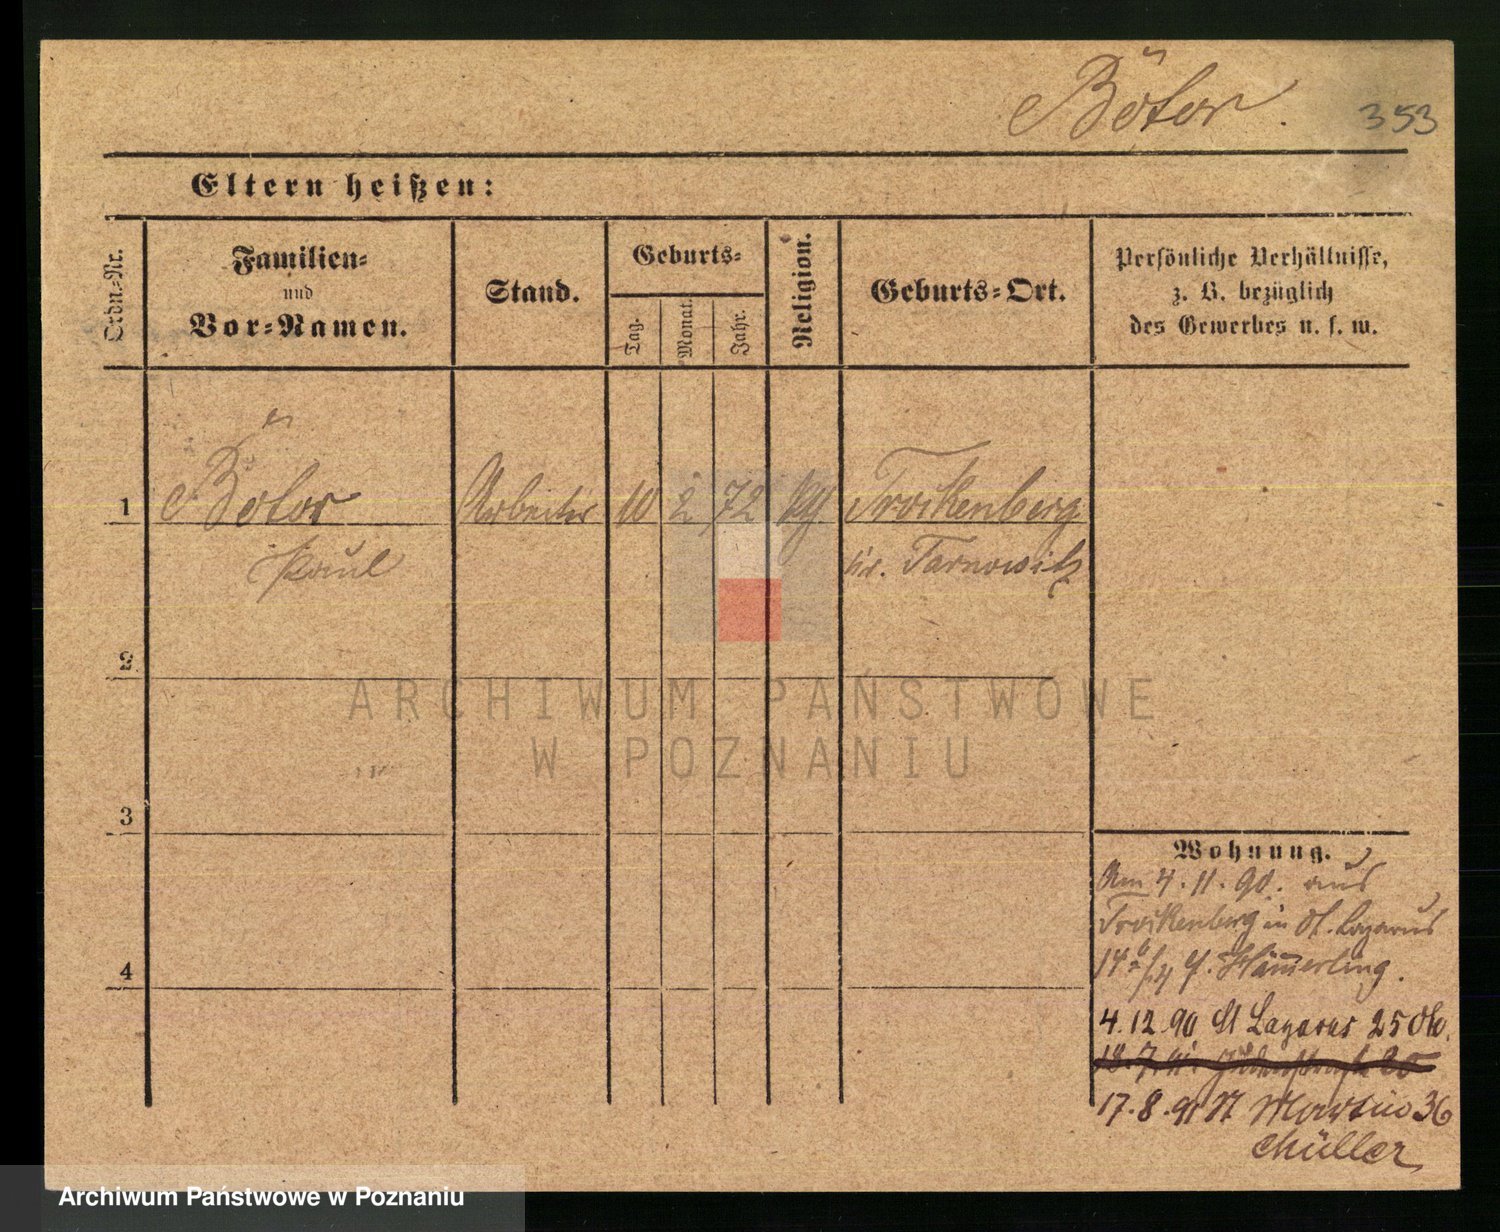 Bötor.
353
Eltern heißen:
Ordn.-Nr.
Familien-
und
Vor-Namen.
Stand.
Geburts-
Tag.
Monat.
Jahr.
Religion.
Geburts-Ort.
Persönliche Verhältnisse,
z. B. bezüglich
des Gewerbes u. s. w.
1 Bötor Arbeiter 10 2 72 Trockenberg
Paul Kr. Tarnowitz
2
ARCHIWUM PAŃSTWOWE
W POZNANIU
3
4
Wohnung.
Am 4.11.90. aus
Trockenberg in St. Lazarus
14 Hämerling.
4.12.90 St Lazarus 25
17.8.91 St Martin 36
Müller
Archiwum Państwowe w Poznaniu